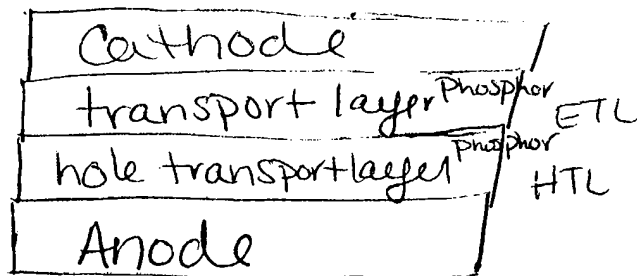 Cathode
transport layer phosphor ETL
hole transport layer phosphor HTL
Anode